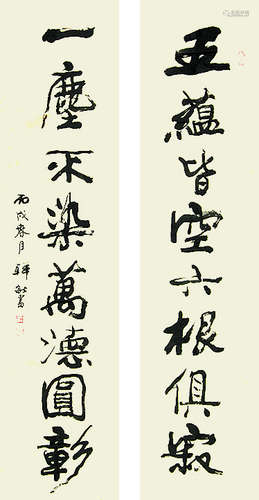 五蘊皆空六根俱寂
一塵不染萬德圓彰
丙戌春月